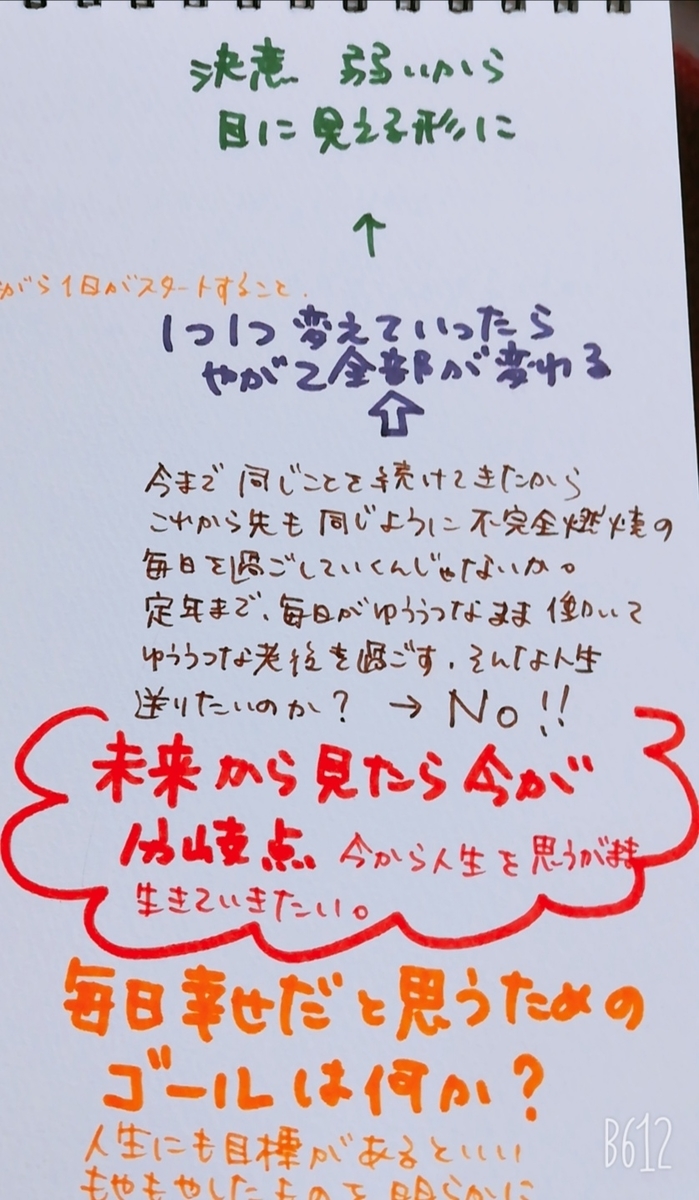 決意 弱いから
目に見える形に
↑
がら1日がスタートすること.
1つ1つ変えていったら
やがて全部が変わる
⇧
今まで同じことを続けてきたから
これから先も同じように不完全燃焼の
毎日を過ごしていくんじゃないか。
定年まで、毎日がゆううつなまま働いて
ゆううつな老後を過ごす.そんな人生
送りたいのか? → No!!
未来から見たら今が
分岐点 今から人生を思うがまま
生きていきたい。
毎日幸せだと思うための
ゴールは何か?
人生にも目標があるといい
もやもやしたものを明らかに
B612